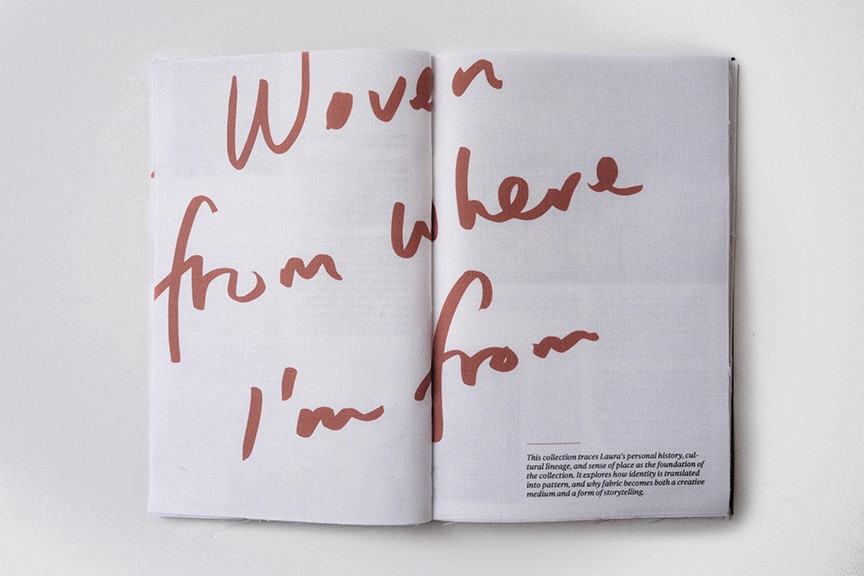 Woven
from where
I'm from
This collection traces Laura's personal history, cul-
tural lineage, and sense of place as the foundation of
the collection. It explores how identity is translated
into pattern, and why fabric becomes both a creative
medium and a form of storytelling.